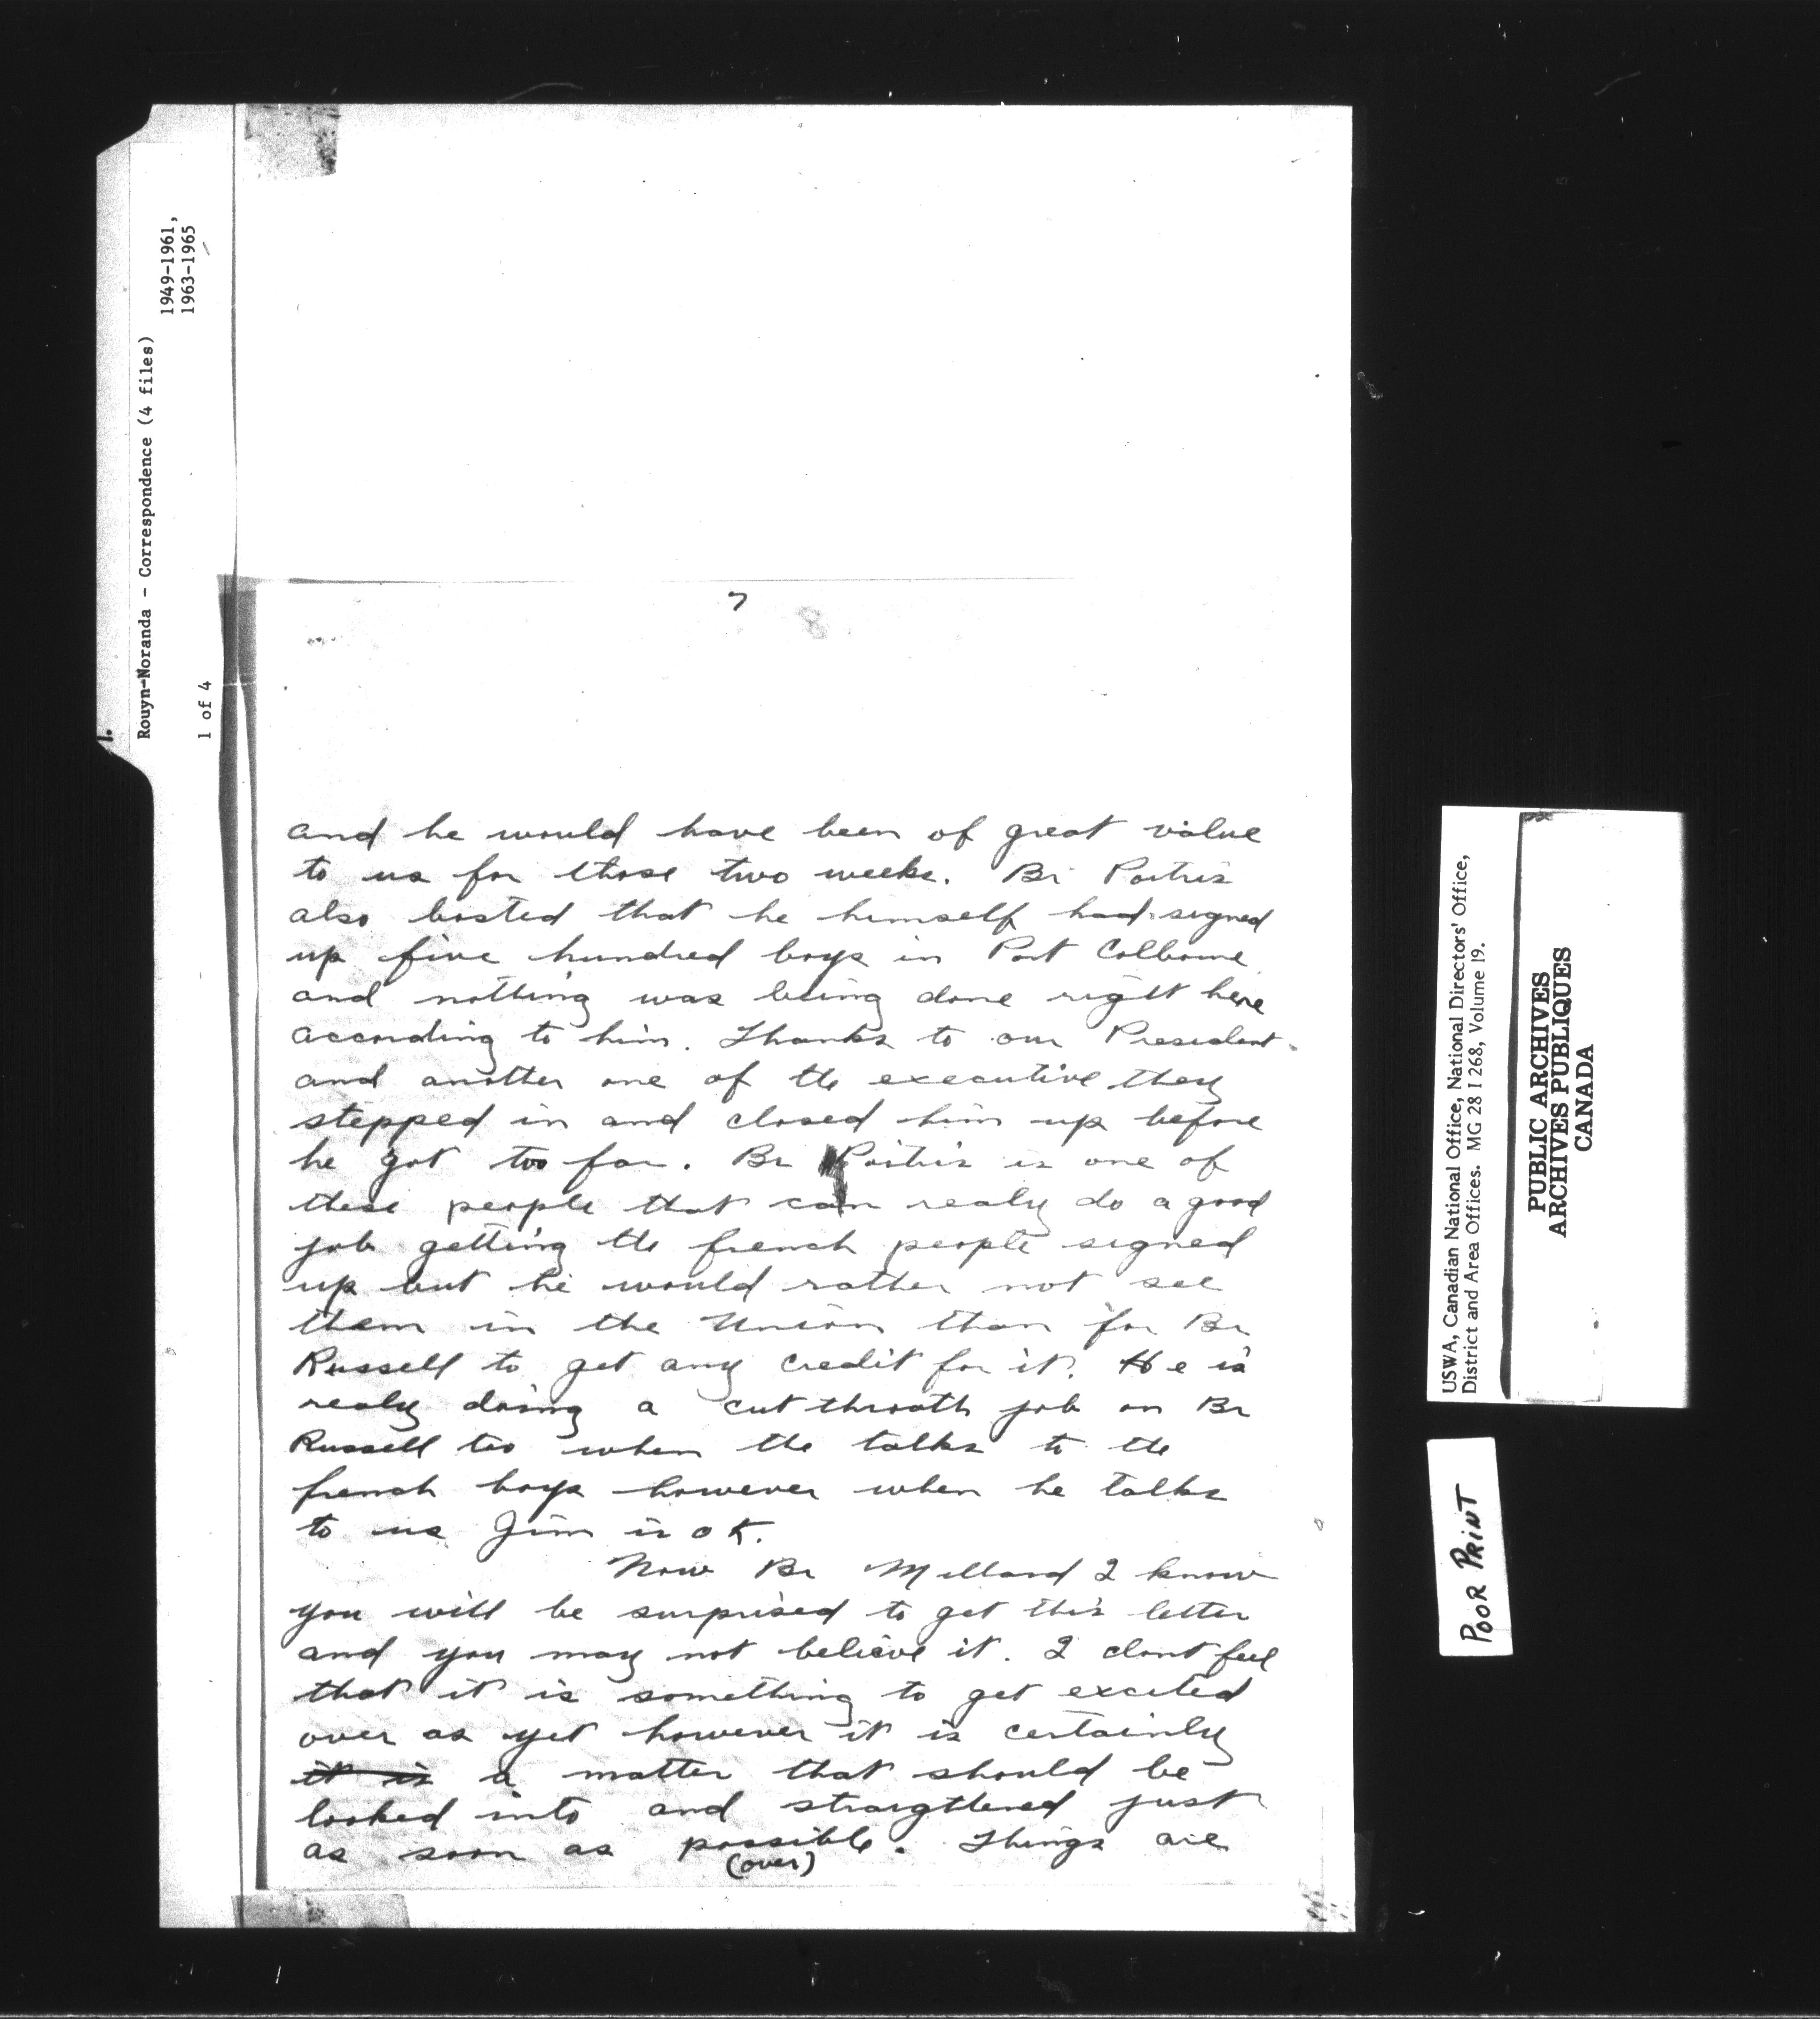 1.
Rouyn-Noranda - Correspondence (4 files)
1949-1961,
1963-1965
1 of 4
7
and he would have been of great value
to us for those two weeks. Br Poitris
also bosted that he himself had signed
up five hundred boys in Port Colborne
and nothing was being done right here
according to him. Thanks to our President
and another one of the executive they
stepped in and closed him up before
he got too far. Br Poitris is one of
these people that can realy do a good
job getting the french people signed
up but he would rather not see
them in the Union than for Br
Russell to get any credit for it. He is
realy doing a cut throath job on Br
Russell too when the talks to the
french boys however when he talks
to us Jim is o K.
Now Br Millard I know
you will be surprised to get this letter
and you may not believe it. I dont feel
that it is something to get excited
over as yet however it is certainly
it is a matter that should be
looked into and straigthened just
as soon as possible. Things are
(over)
USWA, Canadian National Office, National Directors' Office,
District and Area Offices. MG 28 I 268, Volume 19.
PUBLIC ARCHIVES
ARCHIVES PUBLIQUES
CANADA
POOR PRINT